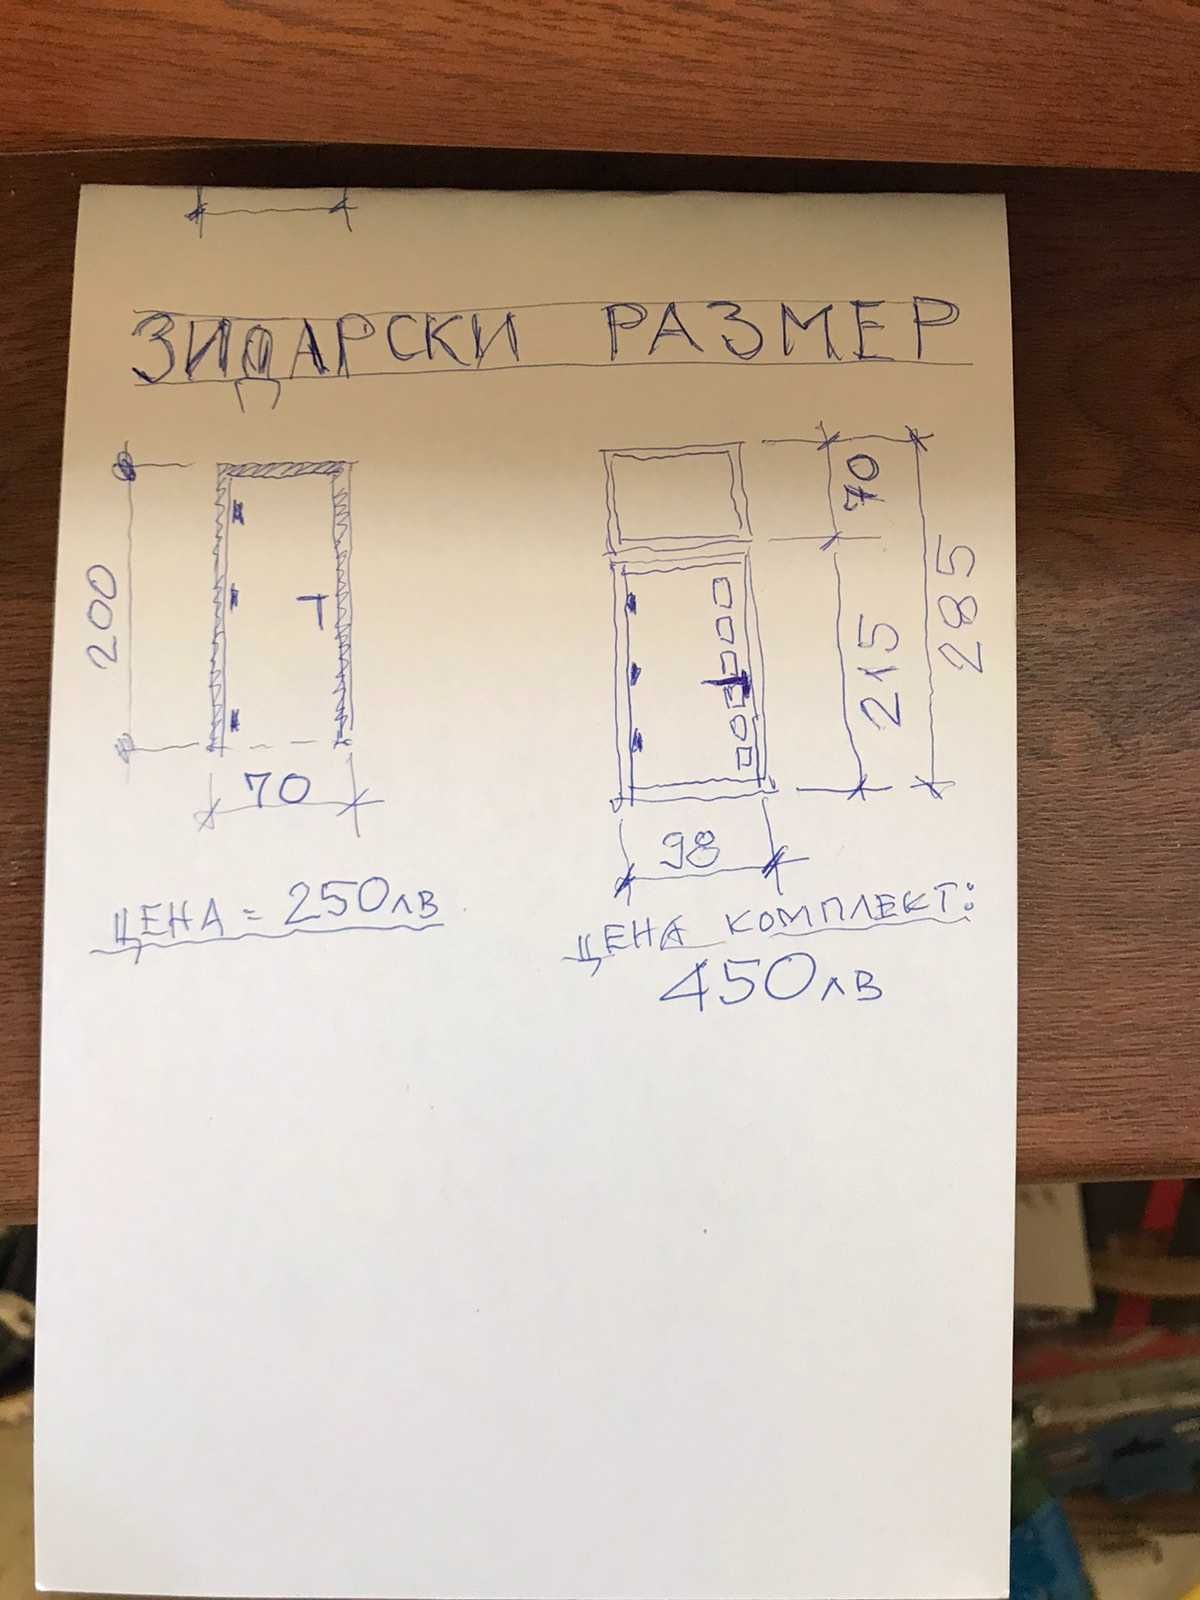 ЗИДАРСКИ РАЗМЕР
200
70
ЦЕНА = 250лв
70
215
285
98
ЦЕНА КОМПЛЕКТ:
450лв